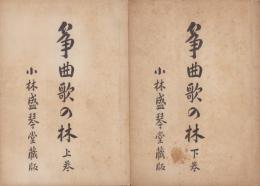 箏曲歌の林 上巻
小林盛琴堂藏版
箏曲歌の林 下巻
小林盛琴堂藏版